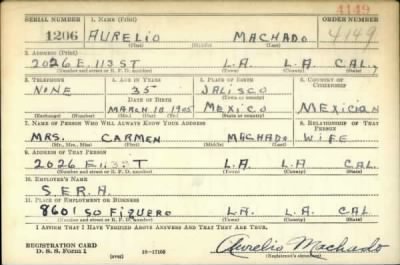 4149
SERIAL NUMBER 1. NAME (Print) ORDER NUMBER
1206 AURELIO MACHADO 4149
(First) (Middle) (Last)
2. ADDRESS (Print)
2026 E. 113 ST L.A. L.A. CAL.
(Number and street or R. F. D. number) (Town) (County) (State)
3. TELEPHONE 4. AGE IN YEARS 5. PLACE OF BIRTH 6. COUNTRY OF CITIZENSHIP
NINE 35 JALISCO
DATE OF BIRTH (Town or county)
MARCH 10 1905 MEXICO MEXICAN
(Exchange) (Number) (Mo.) (Day) (Yr.) (State or country)
7. NAME OF PERSON WHO WILL ALWAYS KNOW YOUR ADDRESS 8. RELATIONSHIP OF THAT PERSON
MRS. CARMEN MACHADO WIFE
(Mr., Mrs., Miss) (First) (Middle) (Last)
9. ADDRESS OF THAT PERSON
2026 E 113 ST L.A. L.A. CAL.
(Number and street or R. F. D. number) (Town) (County) (State)
10. EMPLOYER'S NAME
S.E.R.A.
11. PLACE OF EMPLOYMENT OR BUSINESS
8601 SO FIGUERO L.A. L.A. CAL
(Number and street or R. F. D. number) (Town) (County) (State)
I AFFIRM THAT I HAVE VERIFIED ABOVE ANSWERS AND THAT THEY ARE TRUE.
REGISTRATION CARD
D. S. S. Form 1 (over) 16-17105 Aurelio Machado
(Registrant's signature)